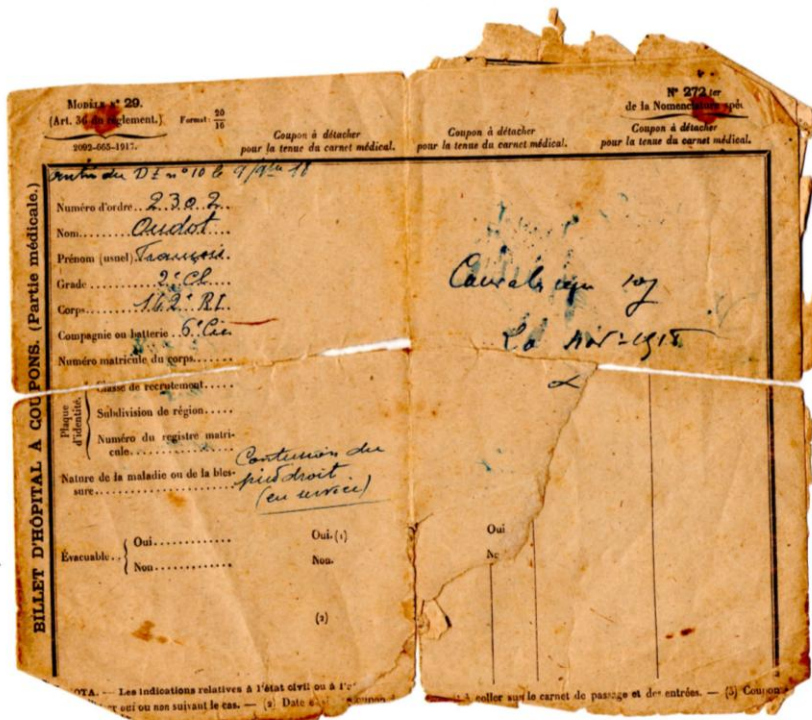 MODÈLE N° 29.
(Art. 36 du règlement.)
Format: 20/16
2092-665-1917.
Coupon à détacher
pour la tenue du carnet médical.
Coupon à détacher
pour la tenue du carnet médical.
N° 272 ter
de la Nomenclature spé
Coupon à détacher
pour la tenue du carnet médical.
BILLET D'HÔPITAL A COUPONS. (Partie médicale.)
du DE n° 10 le 9/9bre 18
Numéro d'ordre.. 2302
Nom....... Oudot
Prénom (usuel) François.
Grade...... 2e Cl
Corps... 142e RI.
Compagnie ou batterie.. 6e Cie
Numéro matricule du corps......
Plaque d'identité.
Classe de recrutement.....
Subdivision de région.....
Numéro du registre matri-
cule.............
Nature de la maladie ou de la bles-
sure..............
Contusion du
pied droit
(en service)
20 Nov-1918
Évacuable..
Oui............ Oui.(1) Oui
Non............ Non.
(2)
OTA. — Les indications relatives à l'état civil ou à l'
oui ou non suivant le cas. — (2) Date
à coller sur le carnet de passage et des entrées. — (3) Coupon